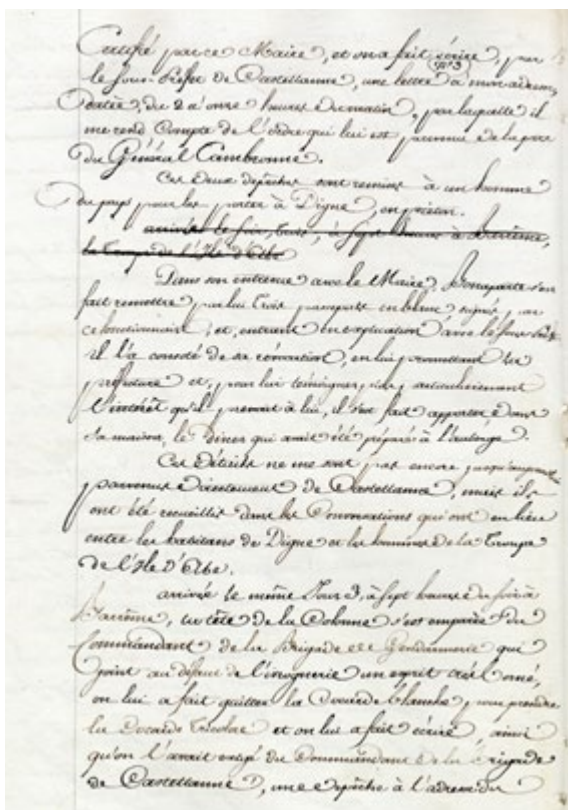 Certifié par ce Maire, et on a fait écrire, par
n° 3
le Sous-Préfet de Castellanne, une lettre à mon adresse,
datée, du 2 a onze heures du matin, par laquelle il
me rend Compte de l'ordre qui lui est parvenu de la part
du Général Cambronne.
Ces deux dépêches sont remises à un homme
du pays pour les porter à Digne, en piéton.
arrivés le soir, trois, à Sept heures à Barrême,
la troupe de l'Ile d'Elbe
Dans son entrevue avec le Maire, Bonaparte s'en
fait remettre par lui trois passeports en blanc, signés par
ce fonctionnaire, et, entrant en explication avec le Sous-Préfet
il l'a consolé de sa révocation, en lui promettant une
préfecture et, pour lui témoigner, plus particulièrement
l'intérêt qu'il prenait à lui, il s'est fait apporter dans
sa maison, le Diner qui avait été préparé à l'auberge.
Ces détails ne me sont pas encore jusqu'à présent
parvenus directement de Castellanne, mais ils
ont été recueillis dans les Conversations qui ont eu lieu
entre les habitans de Digne et les hommes de la Troupe
de l'Ile d'Elbe.
arrivée le même Jour 3, à sept heures du soir à
Barrême, la tête de la Colonne s'est emparée du
Commandant de la Brigade de Gendarmerie qui
joint au défaut de l'ivrognerie un esprit très borné,
on lui a fait quitter la Cocarde blanche, pour prendre
la Cocarde tricolore et on lui a fait écrire, ainsi
qu'on l'avait exigé du Commandant de la Brigade
de Castellanne, une dépêche à l'adresse du